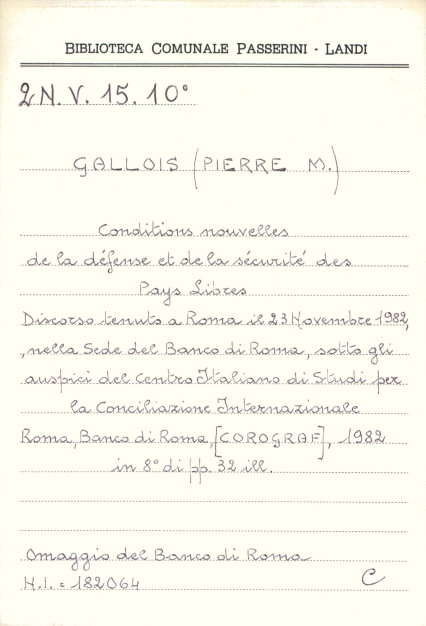 BIBLIOTECA COMUNALE PASSERINI - LANDI
2N.V. 15.10°
GALLOIS (PIERRE M.)
Conditions nouvelles
de la défense et de la sécurité des
Pays Libres
Discorso tenuto a Roma il 23 Novembre 1982,
nella Sede del Banco di Roma, sotto gli
auspici del Centro Italiano di Studi per
la Conciliazione Internazionale
Roma, Banco di Roma, [COROGRAF], 1982
in 8° di pp. 32 ill.
Omaggio del Banco di Roma
N.I. = 182064 C